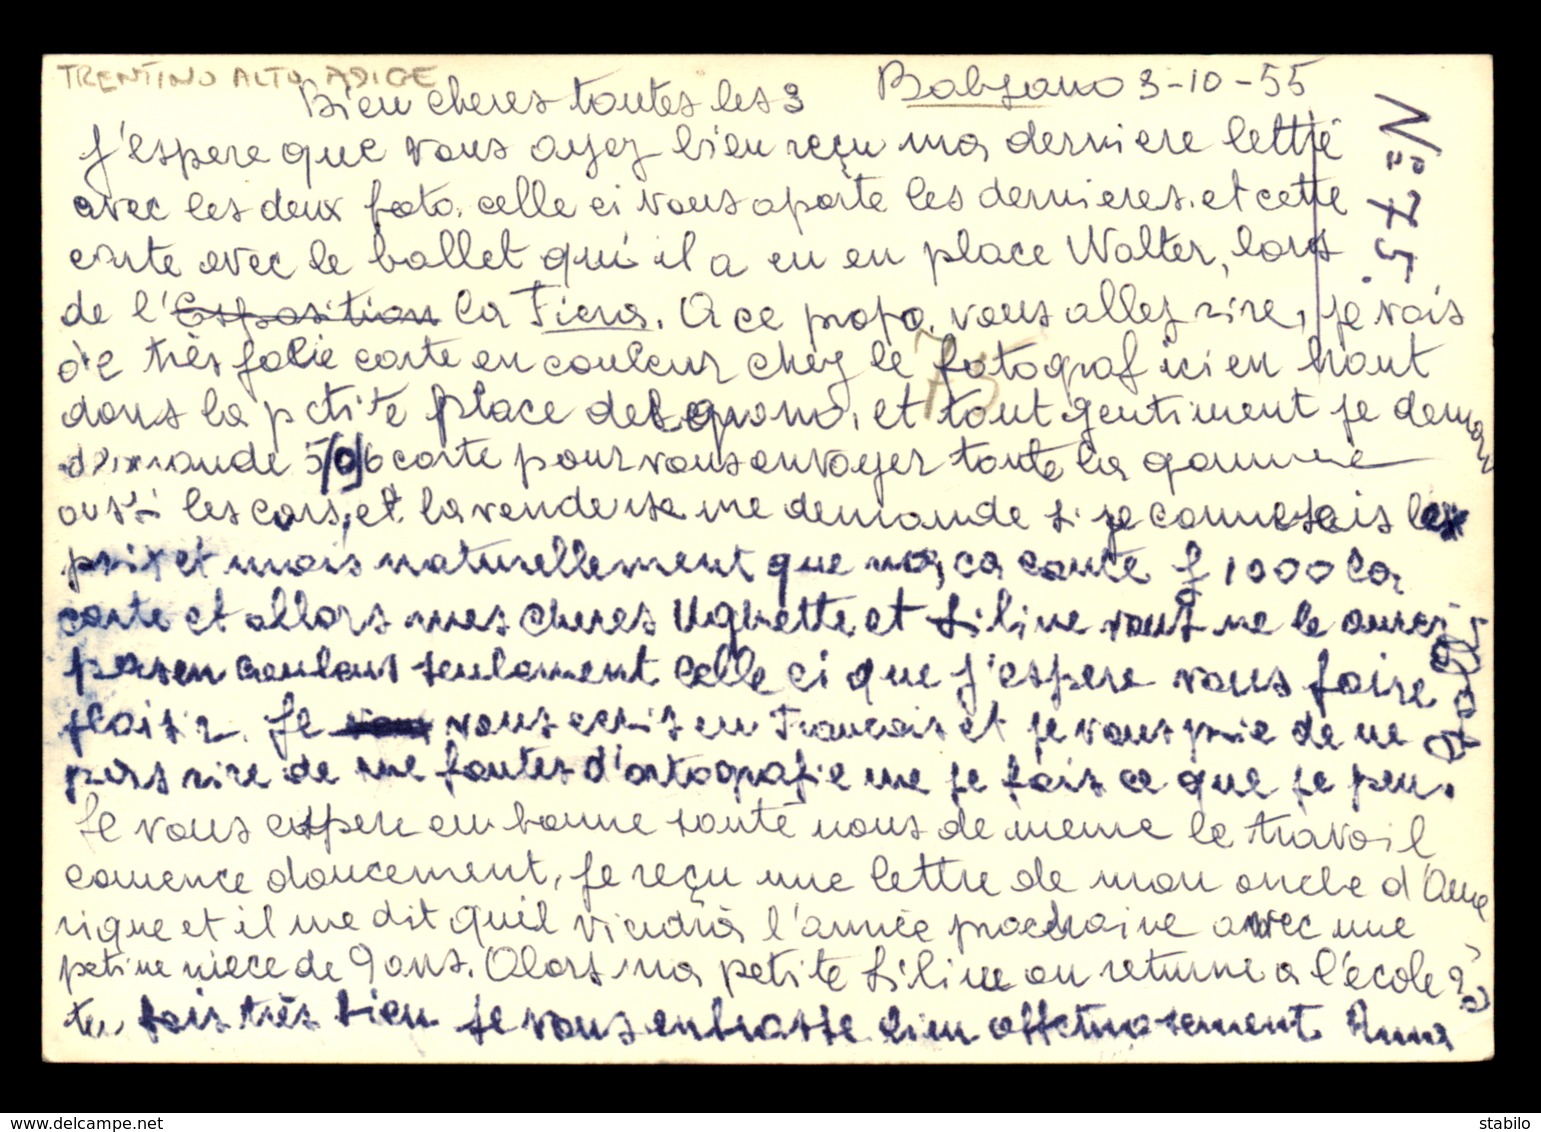 TRENTINO ALTO ADIGE
Bolzano 3-10-55
Bien cheres toutes les 3
N° 275
J'espere que vous ayez bien reçu ma derniere lettre
avec les deux foto. celle ci vous aporte les dernieres. et cette
carte avec le ballet qu'il a eu en place Walter, lors
de l'Esposition la Fiera. A ce propo. vous allez rire, je vais
de très jolie carte en couleur chez le fotograf ici en haut
dans la petite place del grano, et tout gentiment je deman
demande 5/6 carte pour vous envoyer toute la gamme
75
aussi les cars, et la vendeuse me demande si je connesais les
prix et mais naturellement que no, ca coute £ 1000 la
carte et allors mes cheres Ughette et Liline vous ne le aurez
pas en couleur seulement celle ci que j'espere vous faire
plaisir. Je vous ecris en Francais et je vous prie de ne
pas rire de me fautes d'ortografie me je fais ce que je peu.
Je vous espere em bonne santé nous de meme le travail
comence doucement, je reçu une lettre de mon oncle d'Ame
rique et il me dit quil viendrà l'année prochaine avec une
petine niece de 9 ans. Alors ma petite Liline on returne a l'école ??
tu fais très bien je vous embrasse bien affettuosement Anna
stabilo